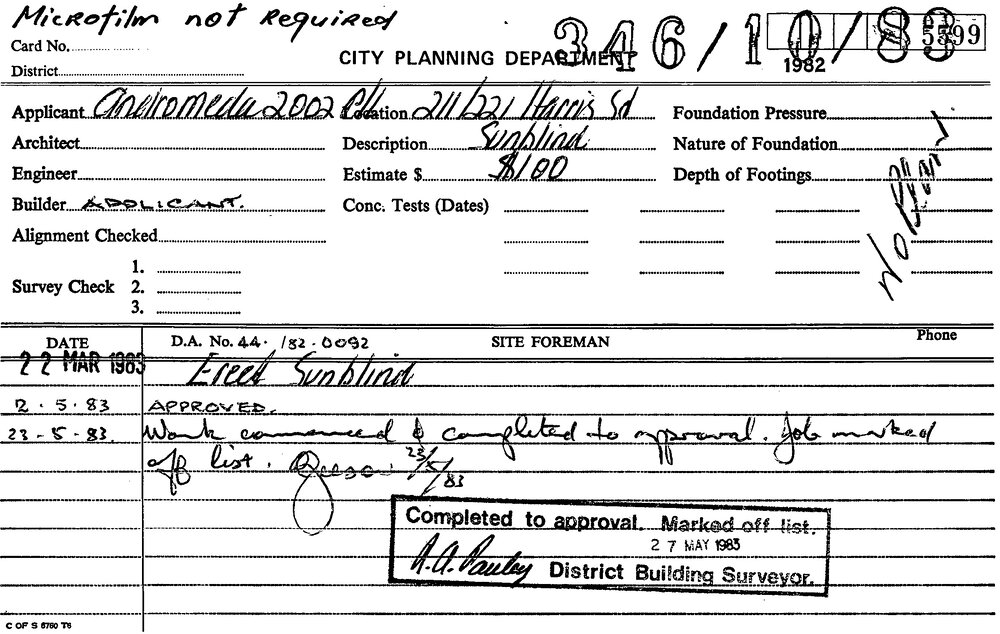 Microfilm not Required
Card No.
District
CITY PLANNING DEPARTMENT
346/10/83
5599
1982
Applicant Andromeda 2002 P/L Location 211/221 Harris Sd Foundation Pressure
Architect Description Sunblind Nature of Foundation
Engineer Estimate $ $100 Depth of Footings
Builder APPLICANT. Conc. Tests (Dates)
No Plan
Alignment Checked
1.
Survey Check 2.
3.
DATE D.A. No. 44. /82.0092 SITE FOREMAN Phone
22 MAR 1983 Erect Sunblind
2.5.83 APPROVED.
23-5-83. Work commenced & completed to approval. Job marked
off list. 23/5/83
Completed to approval. Marked off list.
27 MAY 1983
District Building Surveyor.
C OF S 6760 T6